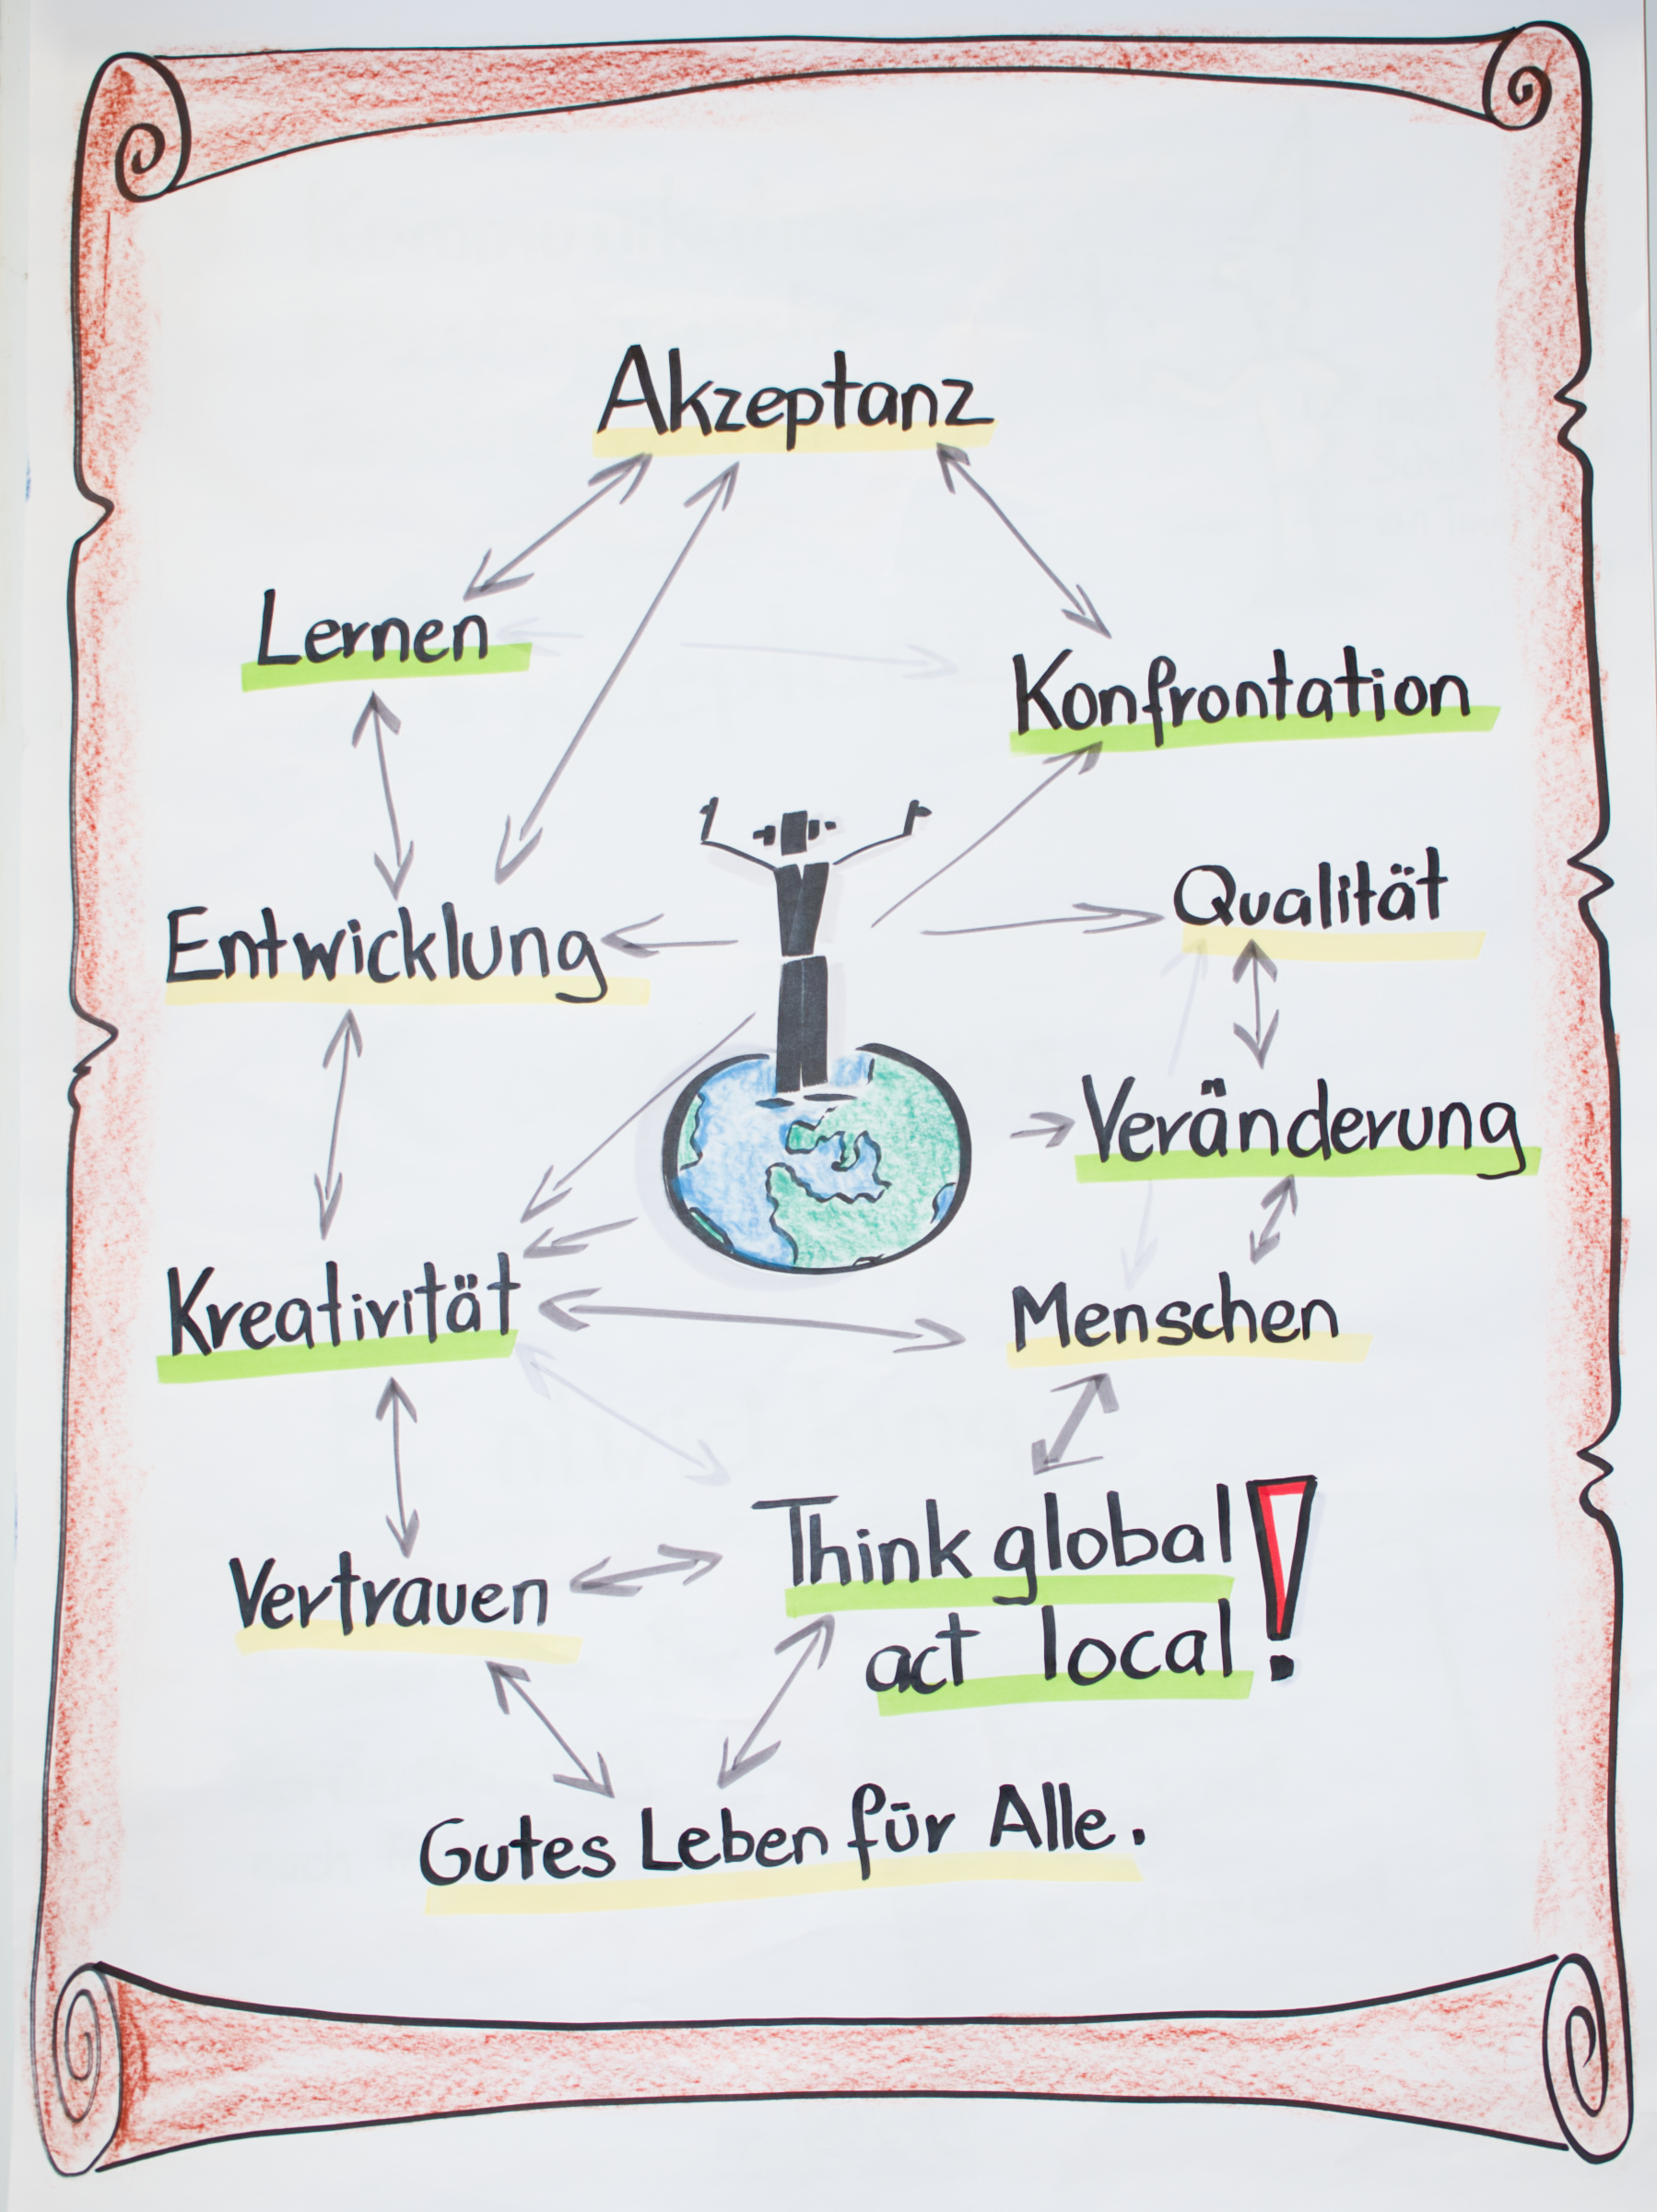 Akzeptanz
Lernen
Konfrontation
Qualität
Entwicklung
Veränderung
Kreativität
Menschen
Think global
act local!
Vertrauen
Gutes Leben für Alle.